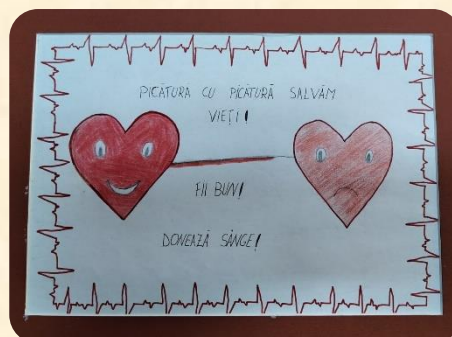 PICĂTURA CU PICĂTURĂ SALVĂM
VIEȚI!
FII BUN!
DONEAZĂ SÂNGE!